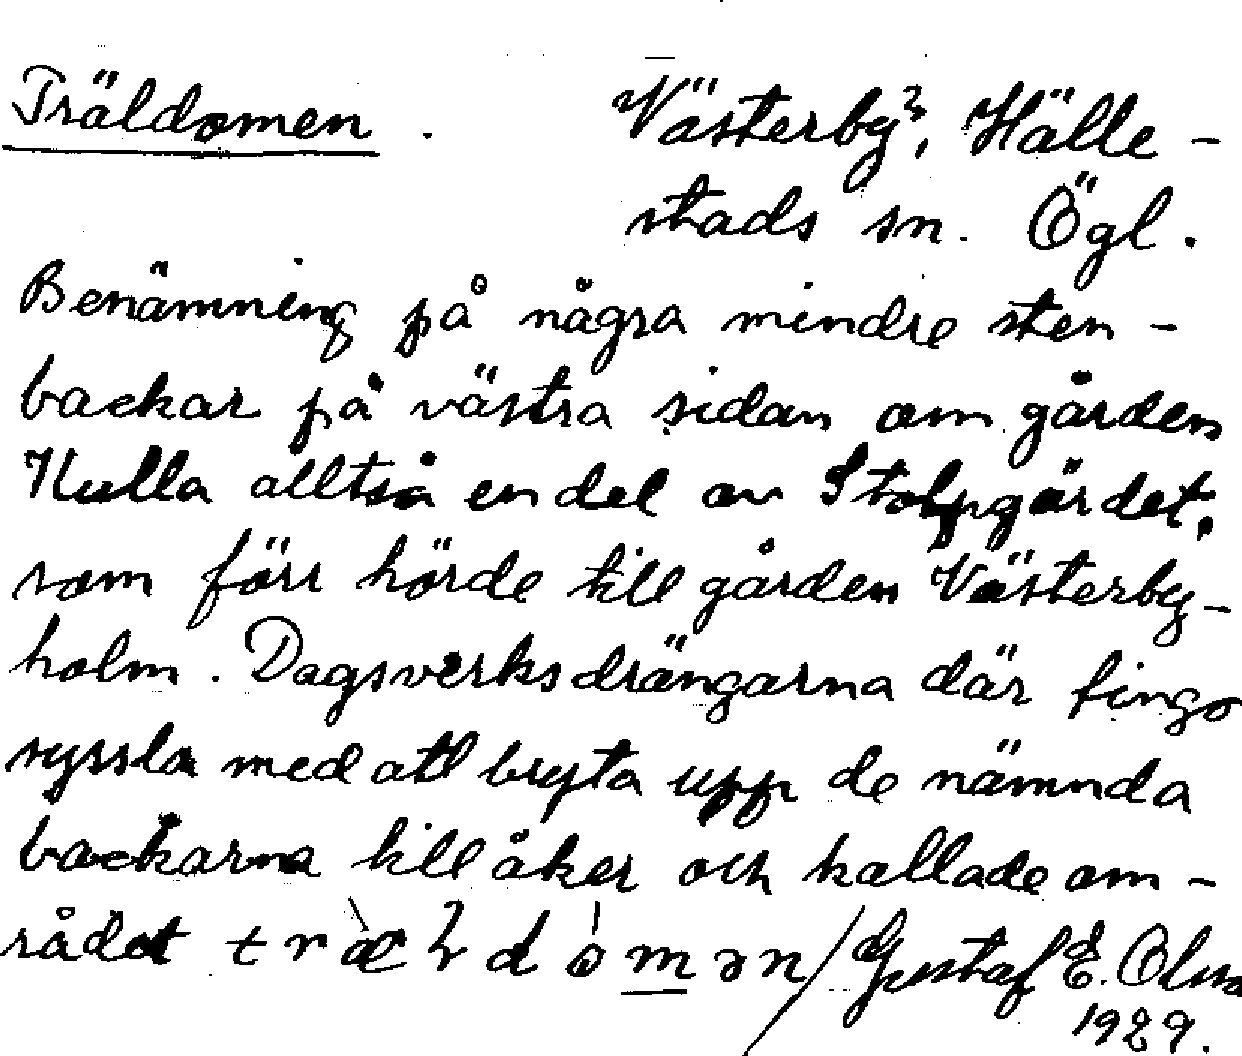 Träldomen. Västerby 2, Hälle-
stads sn. Ögl.
Benämning på några mindre sten-
backar på västra sidan om gården
Kulla alltså en del av Stolpgärdet,
som förr hörde till gården Västerby-
holm. Dagsverksdrängarna där fingo
syssla med att bryta upp de nämnda
backarna till åker och kallade om-
rådet / Gustaf E. Olsso
1929.